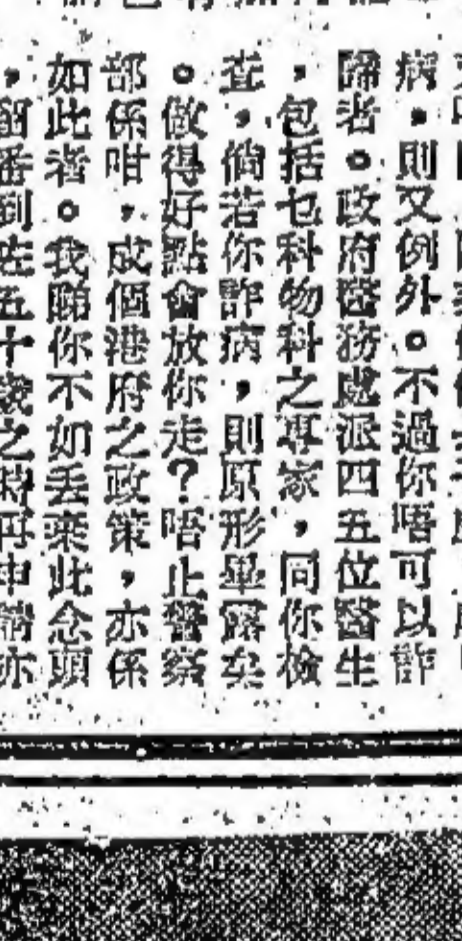 病，則又例外。不過你唔可以詐
歸者。政府醫務處派四五位醫生
，包括乜科物科之專家，同你檢
查，倘若你詐病，則原形畢露矣
。做得好點會放你走？唔止警察
部係咁，成個港府之政策，亦係
如此者。我睇你不如丢棄此念頭
，留番到咗五十歲之時再申請亦